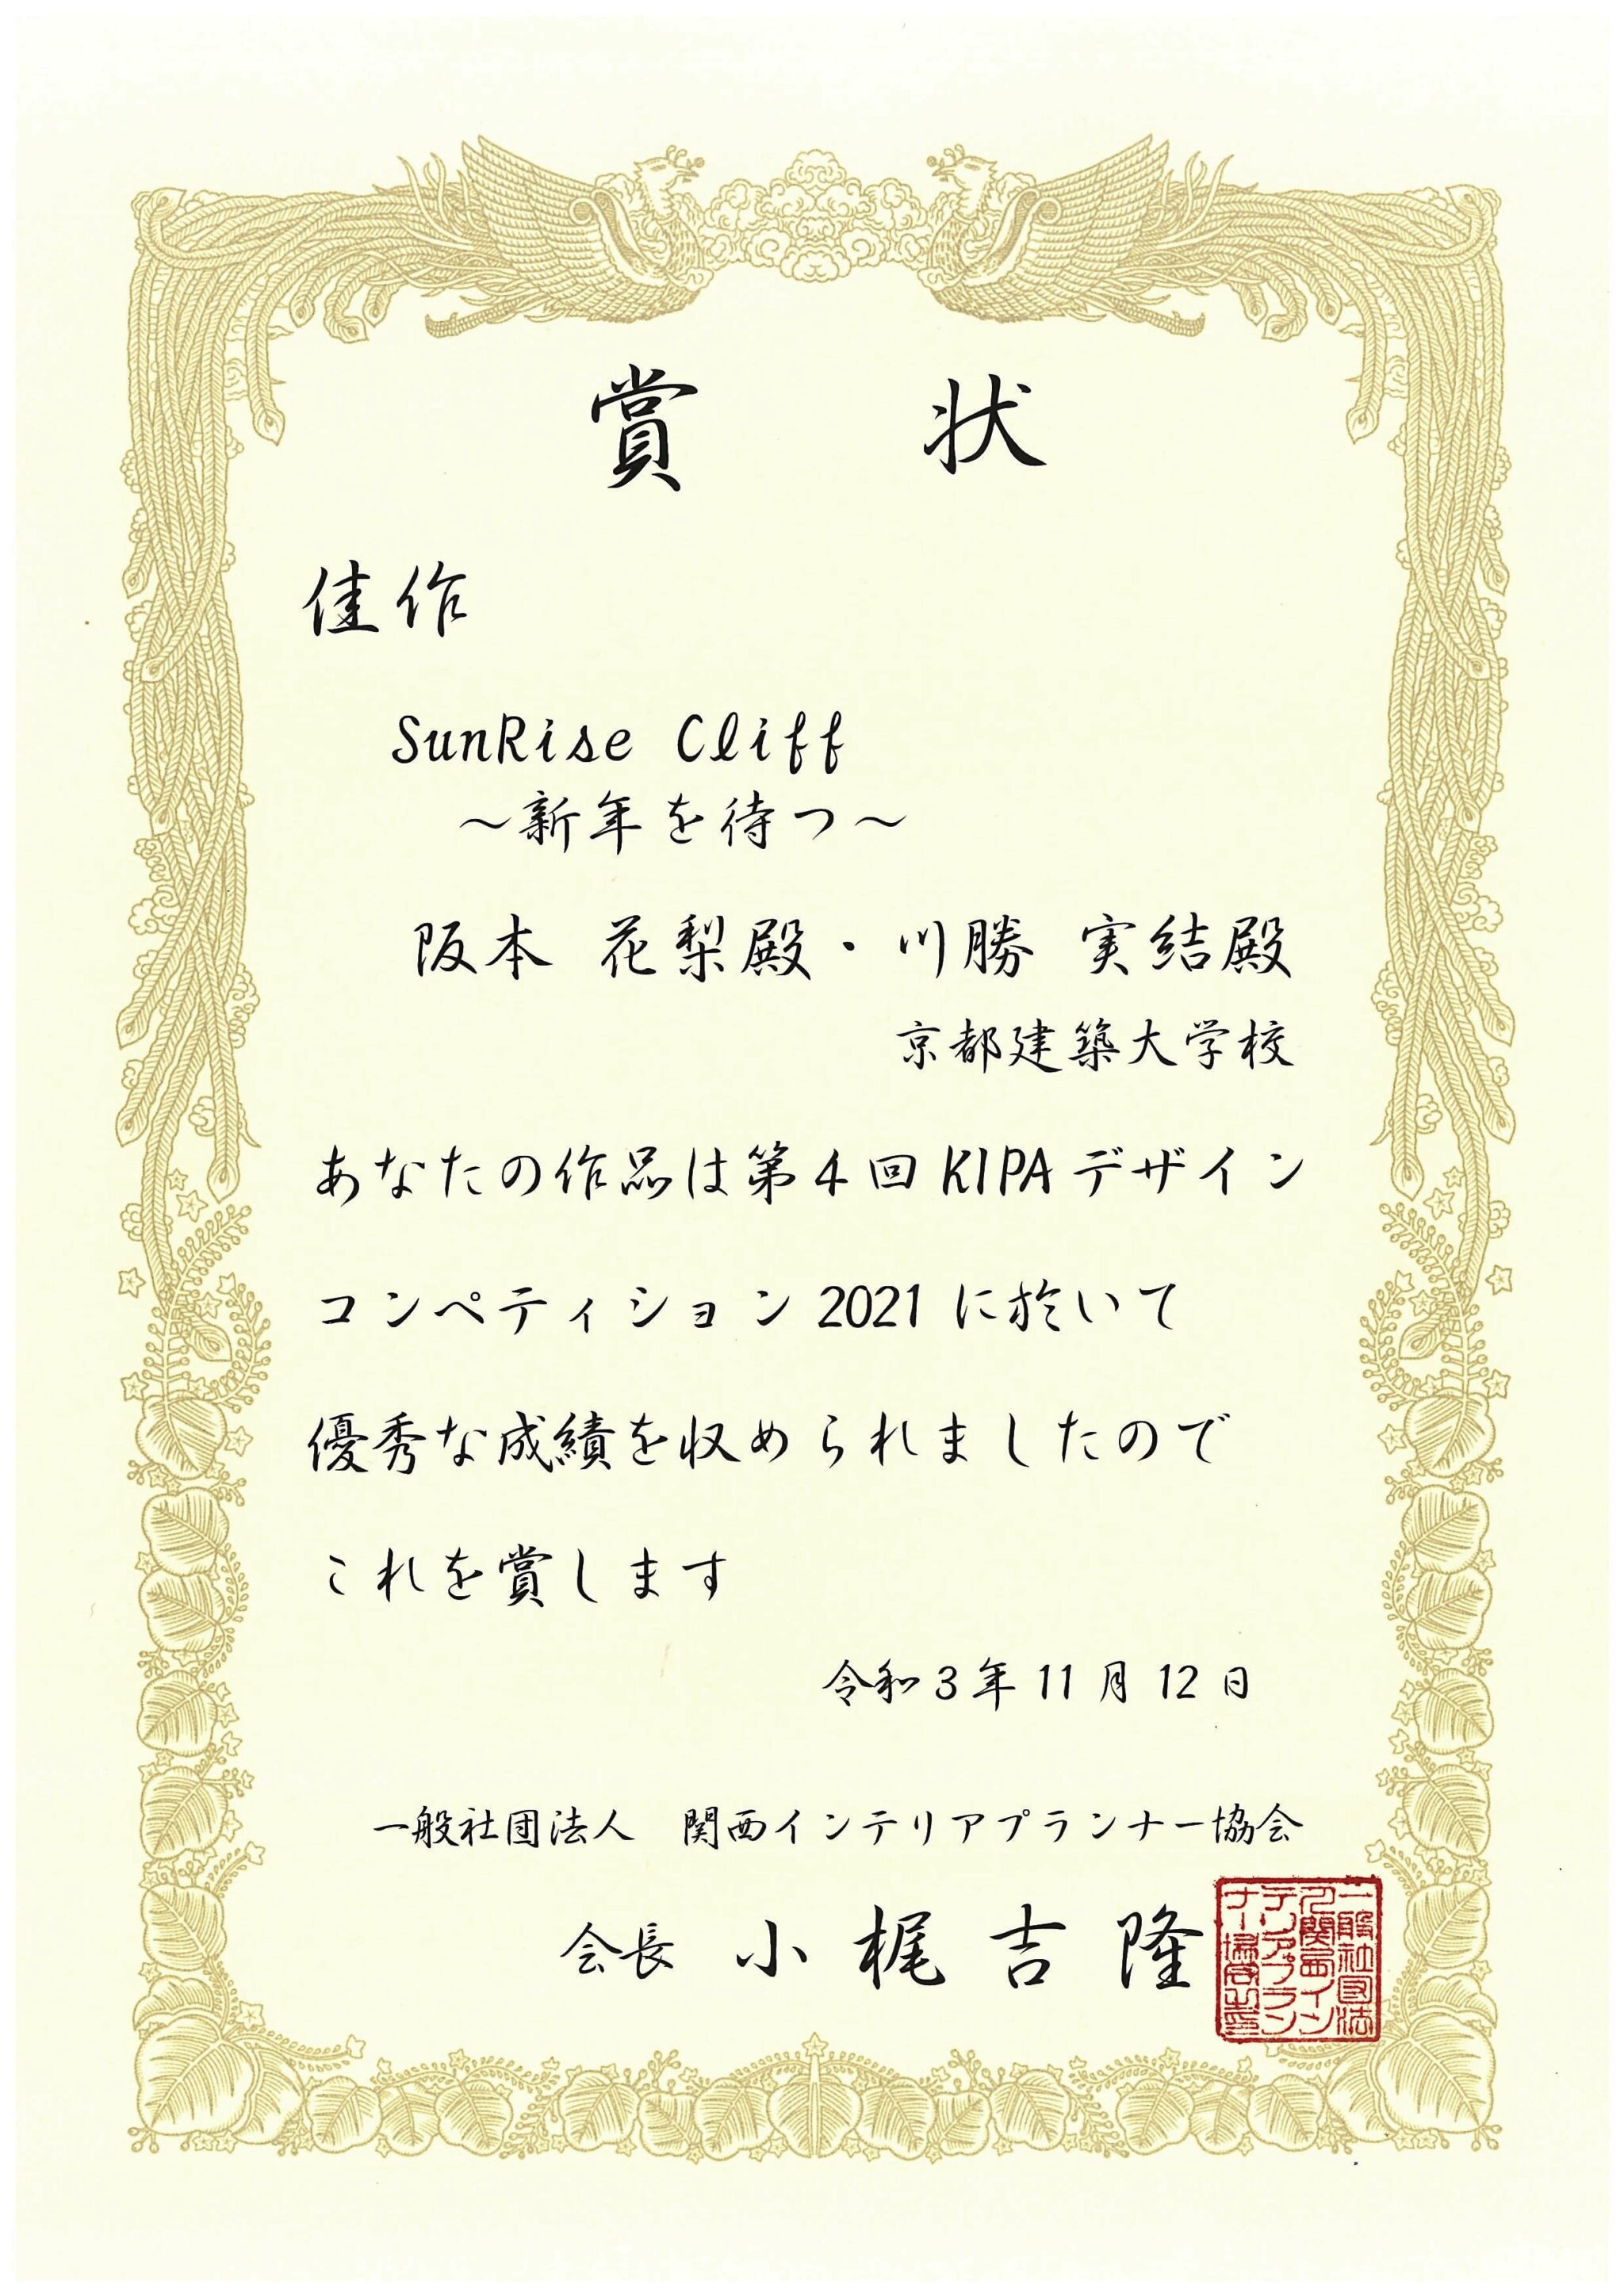 賞状
佳作
SunRise Cliff
～新年を待つ～
阪本 花梨殿・川勝 実結殿
京都建築大学校
あなたの作品は第4回KIPAデザイン
コンペティション2021に於いて
優秀な成績を収められましたので
これを賞します
令和3年11月12日
一般社団法人 関西インテリアプランナー協会
会長 小梶吉隆
一般社団法
人関西イン
テリアプラン
ナー協会之印